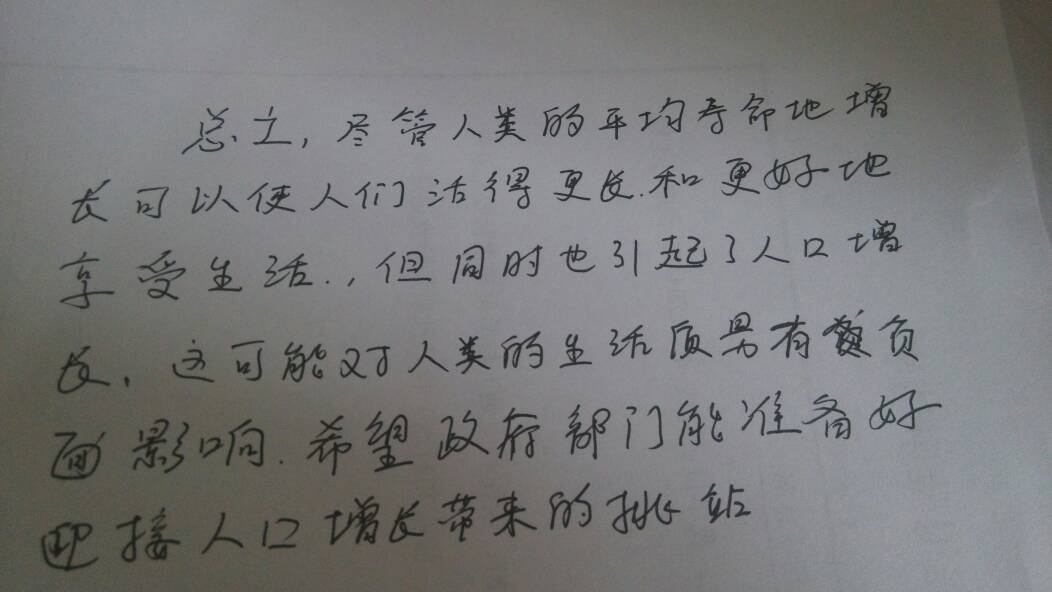 总之,尽管人类的平均寿命地增
长可以使人们活得更长.和更好地
享受生活.,但同时也引起了人口增
长,这可能对人类的生活质量有负
面影响.希望政府部门能准备好
迎接人口增长带来的挑战